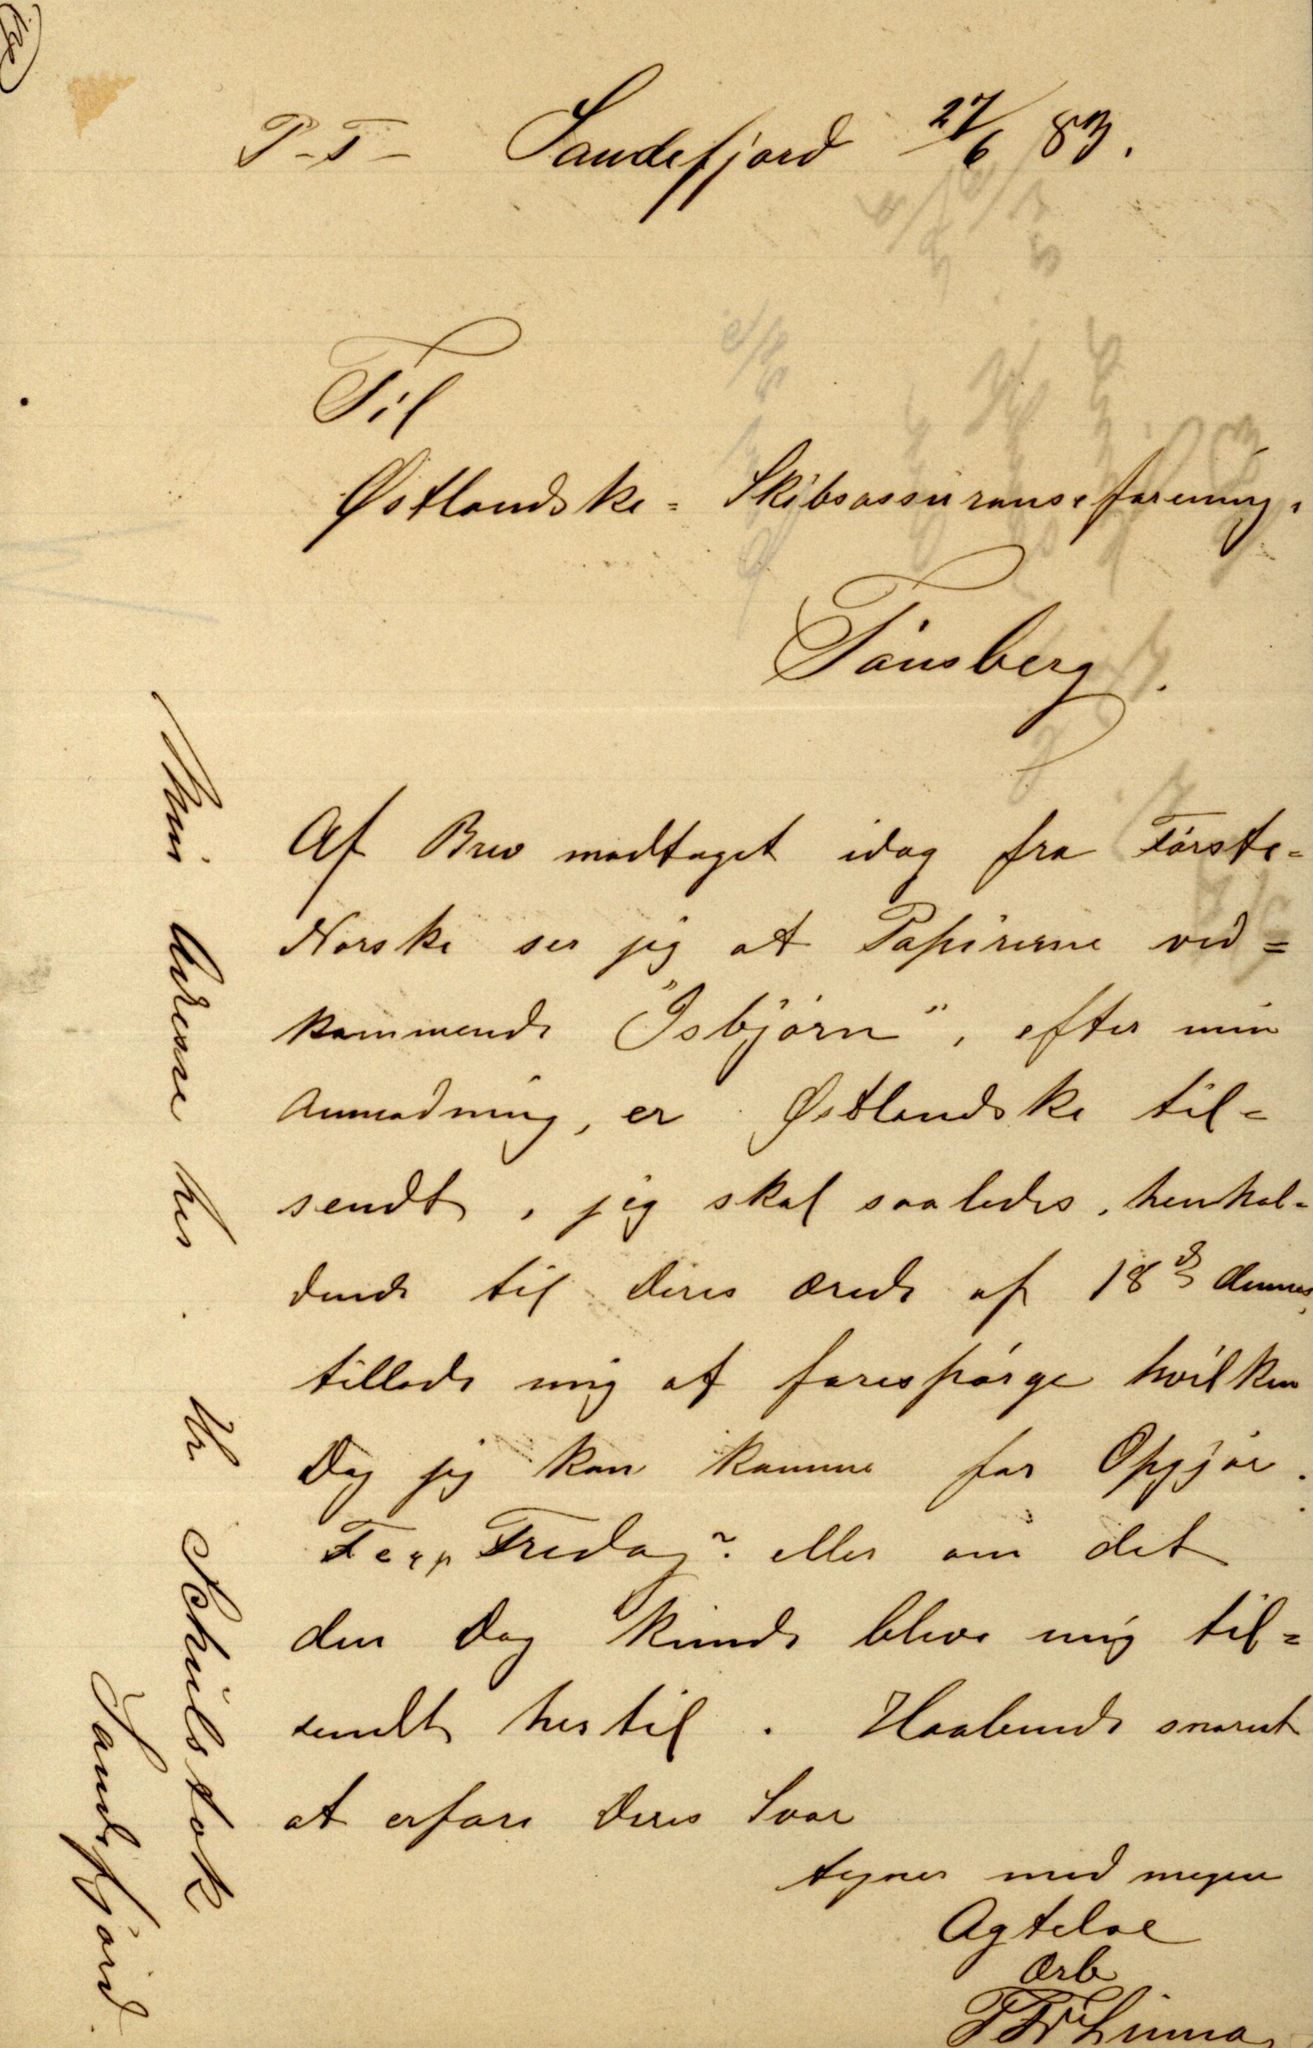 P-T- Sandefjord 27/6 83.
Til
Østlandske= Skibsassuranseforening.
Tönsberg.
Af Brev modtaget idag fra Förste=
Norske ser jeg at Papirerne ved=
kommende "Isbjörn", efter min
Anmodning, er Østlandske til=
sendt, jeg skal saaledes, henhol-
dende til Deres ærede af 18d dennes,
tillade mig at forespörge hvilken
Dag jeg kan komme for Opgjör.
Fredag? eller om det
den Dag kunde blive mig til=
sendt hertil. Haabende snarest
at erfare Deres Svar
tegner med megen
Agtelse
ærb
Min Adresse her. Hr Schilstok
Sandefjord.